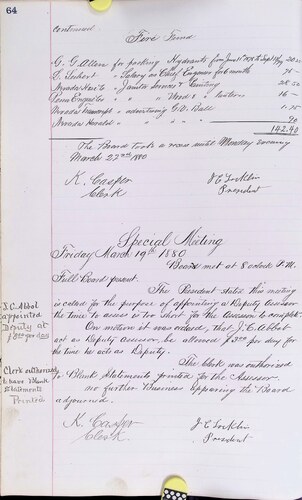 64
continued
Fire Fund
G. G. Allen for packing Hydrants from June 1st
S. Seibert " Salary as Chief Engineer for 6 months 75 -
Nevada Hose Co " Janitor services & Cleaning
Penn Engine Co " " Wood & " lanterns 16 -
Nevada Transcript " advertising
Nevada Herald " " " 90
142.40
The Board took a recess until Monday evening
March 27th 1880
K. Casper
Clerk
J E Locklin
President
Special Meeting
Friday March 19th 1880
Board met at 8 oclock P.M.
Full Board present.
The President states this meeting
is called for the purpose of appointing a Deputy Assessor
the time to assess is too short for the Assessor to complete
On motion it was ordered, that J. C. Abbot
act as Deputy Assessor, be allowed $3.00 per day for
the time he acts as Deputy.
The Clerk was authorized
to Blank Statements printed for the Assessor
no further Business appearing the Board
adjourned.
K. Casper
Clerk
J E Locklin
President
J. C. Abbot
appointed
Deputy at
$3.00 per day
Clerk authorized
to have Blank
Statements
Printed